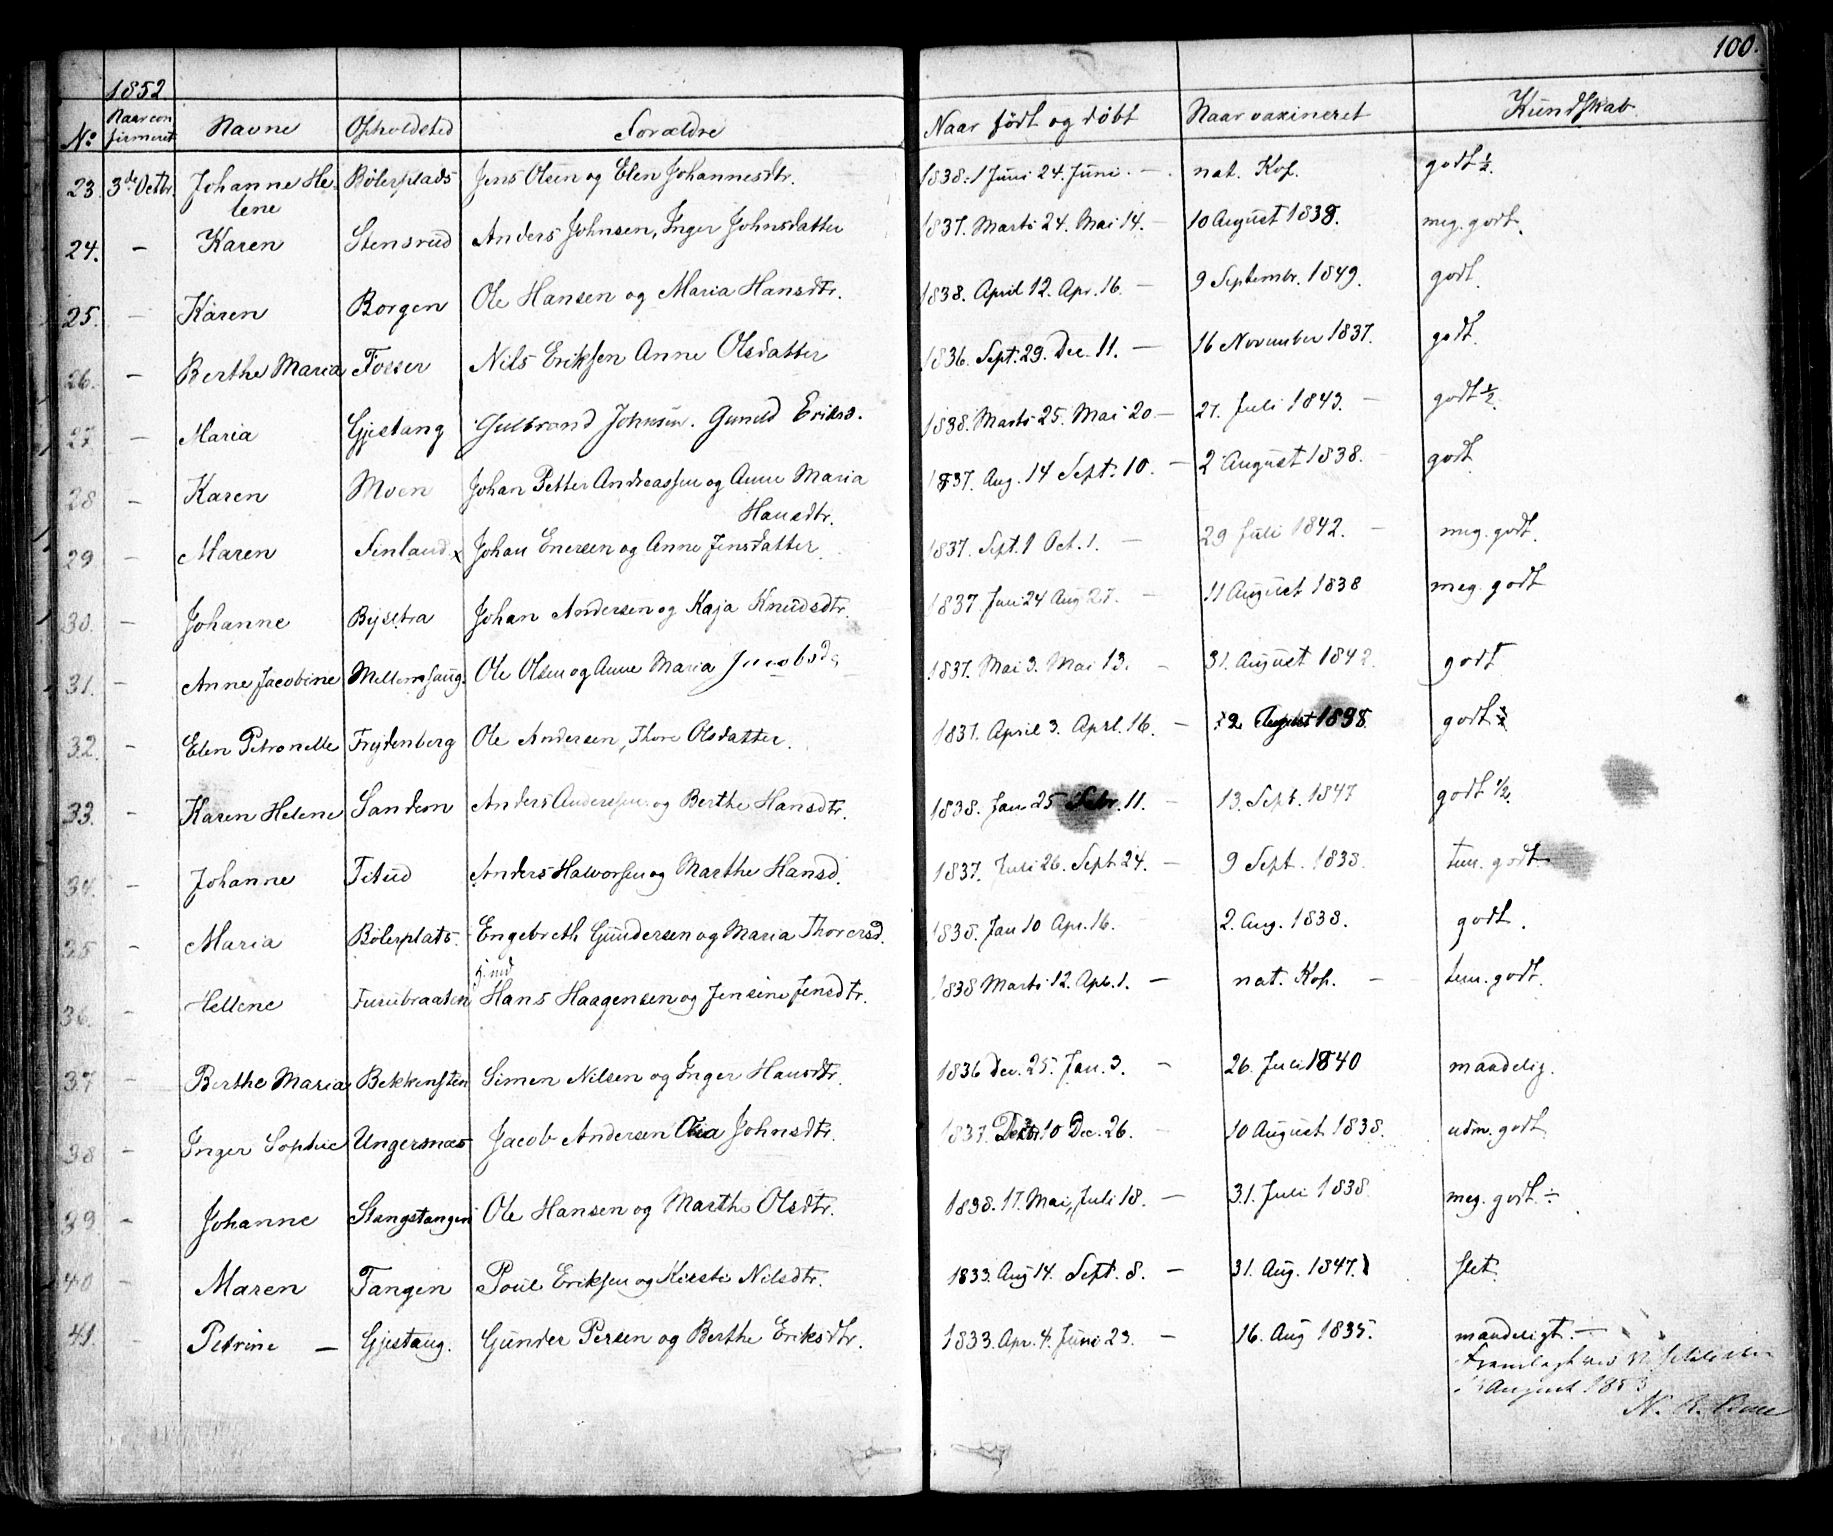 100.
1852
No Naar confirmeret Navne Opholdsted Forældre Naar født og døbt Naar vaxineret Kundskab
23. 3de Octbr. Johanne He- Bölerplads Jens Olsen og Elen Johannesdtr. 1838. 1 Juni 24. Juni. — nat. Kop. godt ½.
lene
24. — Karen Stensrud Anders Johnsen, Inger Johnsdatter 1837. Marts 24. Mai 14. — 10 August 1838. meg. godt.
25. — Karen Borgen Ole Hansen og Maria Hansdtr. 1838. April 12. Apr. 16. — 9 Septembr. 1849. godt.
26. — Berthe Maria Fosser Nils Eriksen Anne Olsdatter 1836. Sept. 29. Dec. 11. — 16 November 1837. godt.
27. — Maria Gjestang Gulbrand Johnsen. Gunild Eriksd. 1838. Marts 25. Mai 20 — 27. Juli 1843. — godt ½.
28 — Karen Moen Johan Petter Andreassen og Anne Maria 1837. Aug. 14 Sept. 10. — 2 August 1838. — godt
Hansdtr.
29 — Maren Finland x Johan Enersen og Anne Jensdatter 1837. Sept. 1 Oct. 1. — 29 Juli 1842. — meg. godt.
30. — Johanne Bijstra Johan Andersen og Kaja Knudsdtr. 1837. Juni 24 Aug 27. — 11 August 1838 meg. godt
31. — Anne Jacobine Mellemsaug. Ole Olsen og Anne Maria Jacobsd. 1837. Mai 3. Mai 13. — 31. August 1842. godt
32. — Elen Petronelle Frydenberg Ole Andersen, Thore Olsdatter. 1837. April 3. Aprl. 16. — 2 August 1838 godt ½
33. — Karen Helene Sandem Anders Andersen og Berthe Hansdtr. 1838. Jan 25 Febr. 11. — 13. Sept. 1847 godt ½.
34. — Johanne Titud Anders Halvorsen og Marthe Hansd. 1837. Juli 26. Sept 24. — 9 Sept. 1838. tem. godt
35 — Maria Bölerplats. Engebreth Gundersen og Maria Thorersd. 1838. Jan 10 Apr. 16. 2. Aug. 1838. godt.
36. — Hellene Furubraaten Hans Haagensen og Jensine Jensdtr. 1838 Marts 12. Apr. 1. — nat. Kop. — tem. godt.
37 — Berthe Maria Bekkensten Simen Nilsen og Inger Hansdtr. 1836 Dec. 25. Jan. 3. — 26. Juli 1840 maadelig.
38 — Inger Sophie Ungersnæs Jacob Andersen Olea Johnsdtr. 1837. 10 Dec. 26. — 10 August 1838. udm. godt
39. — Johanne Stangstangen Ole Hansen og Marthe Olsdtr. 1838. 17. Mai, Juli 18. — 31. Juli 1838 meg. godt ÷.
40 — Maren Tangen Poul Eriksen og Kirsti Nilsdtr. 1833. Aug 14. Sept. 8. — 31. Aug. 1847. slet.
41. — Petrine — Gjestang. Gunder Persen og Berthe Eriksdtr. 1833. Apr. 4. Juni 23. — 16. Aug 1835. maadeligt. —
Fremlagt ved
August 1853
N. R.